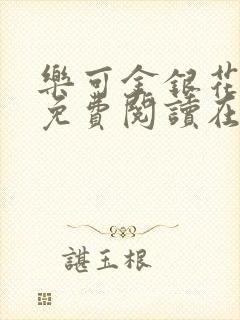 樂可金銀花
免費閱讀在
諶玉根